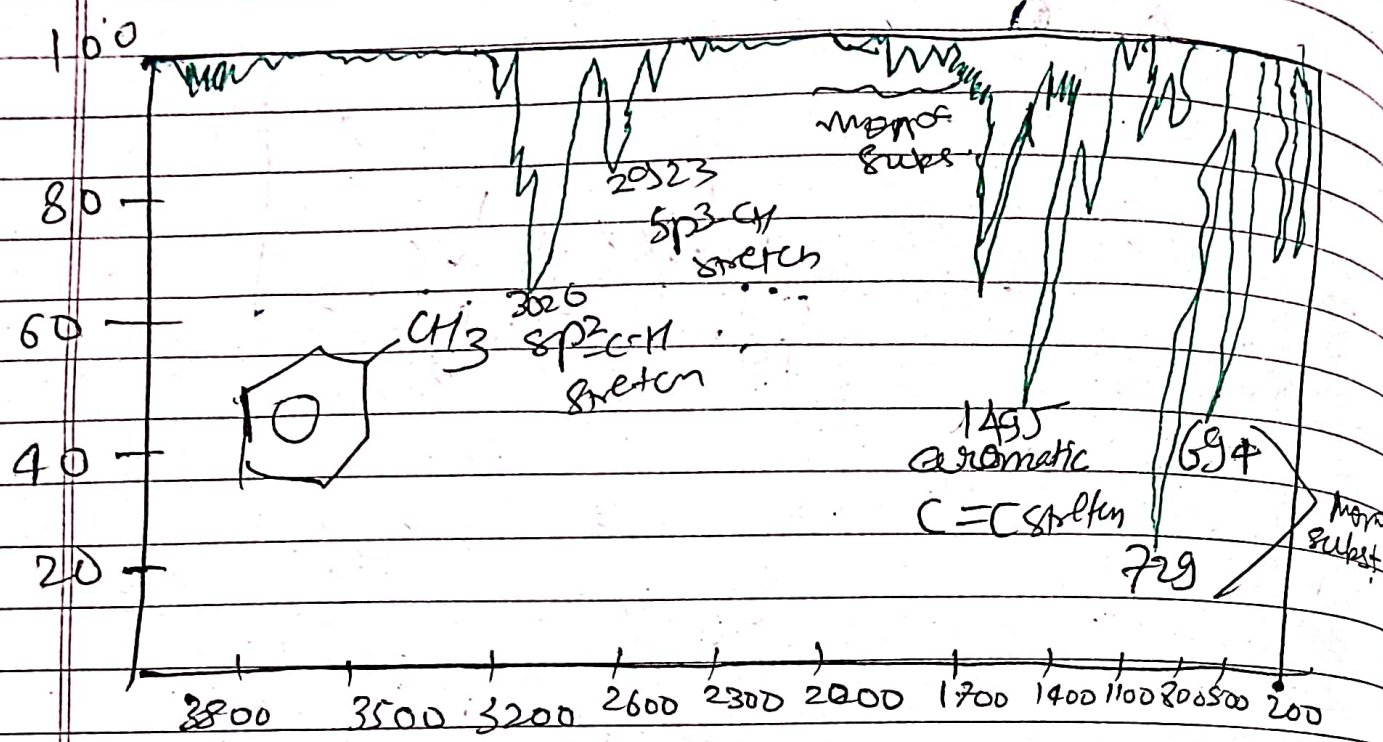 100
80
60
40
20
2923
sp3-CH
stretch
mono
subs.
CH3
3026
sp2-C-H
stretch
1495
aromatic
C=C stretch
694
729
mono
subst.
3800 3500 3200 2600 2300 2000 1700 1400 1100 800 500 200